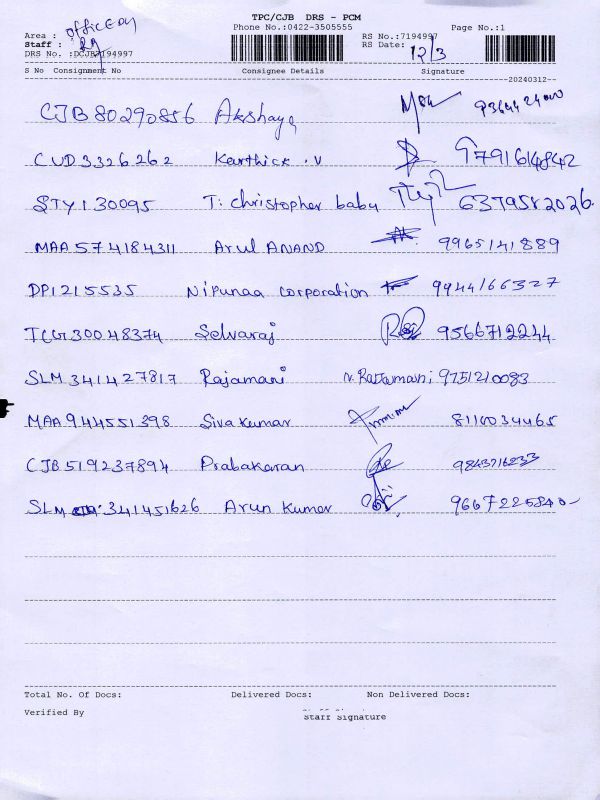 TPC/CJB DRS - PCM
Phone No.:0422-3505555
Page No.:1
Area : office
Staff :
RS No.:7194997
RS Date: 12/3
DRS No. :DCJB7194997
S No Consignment No Consignee Details Signature
20240312--
CJB 80290856 Akshaya
CUD3326262 Karthick .V 9791614842
STY130095 T: Christopher babu 6379582026.
MAA 574184311 Arul ANAND 9965141889
DPI215535 Nipunaa Corporation 9944166327
TCG30048374 Selvaraj 9566712244
SLM341427817 Rajamani 9751210083
MAA944551398 Sivakumar 8110034465
CJB519237894 Prabakaran 9843716233
SLM 341451626 Arun Kumar 9667225840-
Total No. Of Docs: Delivered Docs: Non Delivered Docs:
Verified By
Staff Signature